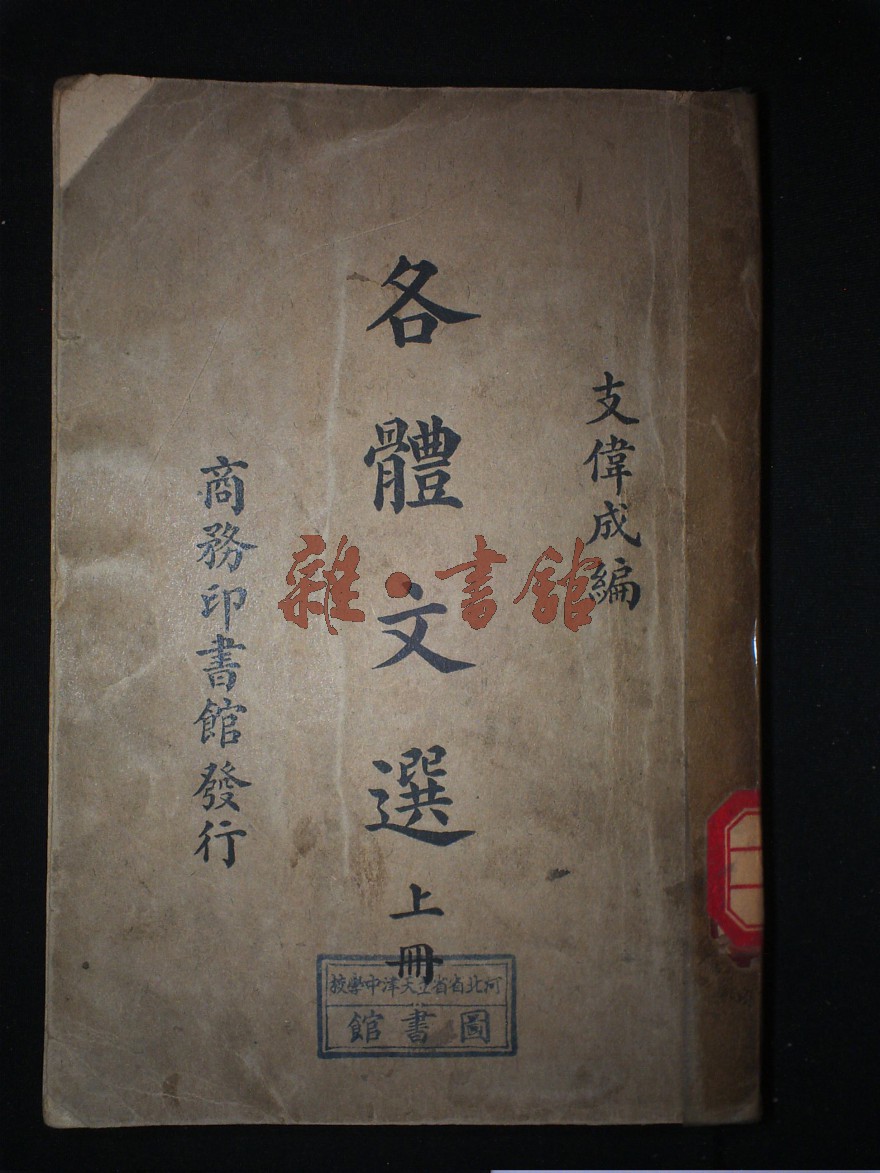 支偉成編
各體文選上冊
商務印書館發行
雜·書館
河北省省立天津中學校
圖書館